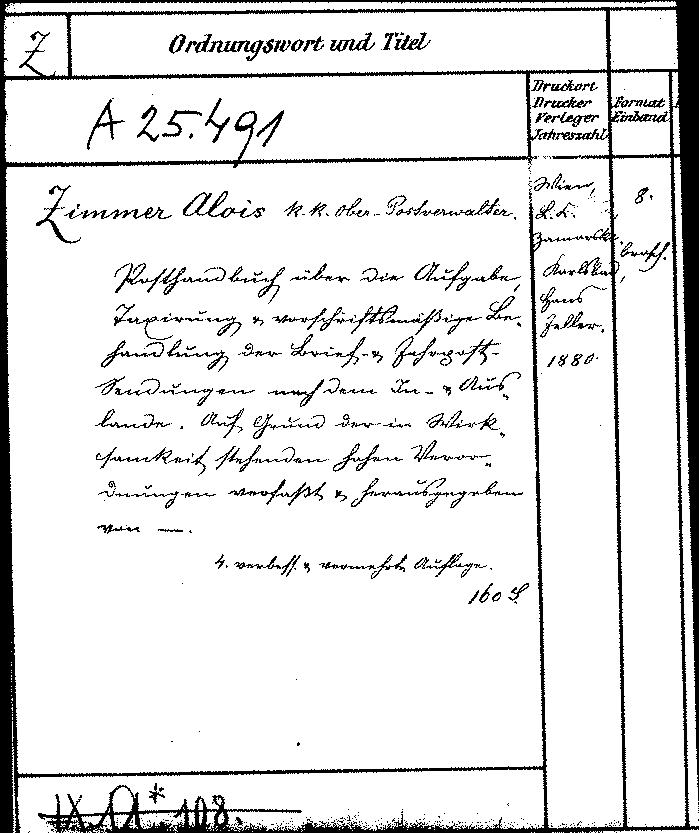 Z
Ordnungswort und Titel
Druckort
Drucker
Verleger
Jahreszahl
Format
Einband
A 25.491
Zimmer Alois k.k. Ober-Postverwalter.
Posthandbuch über die Aufgabe,
Taxirung & vorschriftsmäßige Be-
handlung der Brief- & Fahrpost-
Sendungen nach dem In- & Aus-
lande. Auf Grund der in Wirk-
samkeit stehenden hohen Veror-
dnungen verfaßt & herausgegeben
von —.
4. verbess. & vermehrte Auflage.
160 S.
Wien,
L. C.
Zamarski.
Karlsbad,
Hans
Zeller.
1880.
8.
brosch.
IX A* 108.